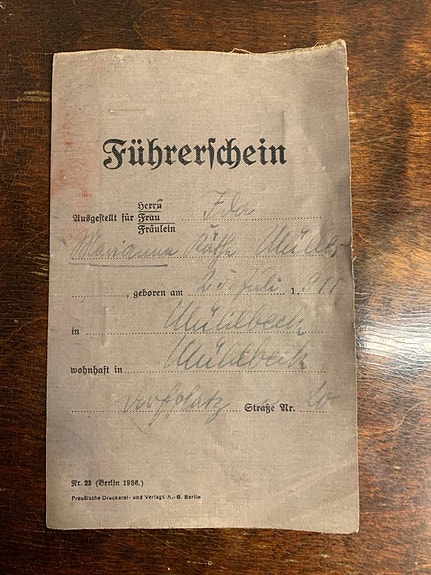 Führerschein
Herrn
Ausgestellt für Frau Ida
Fräulein
Marianna Käthe
, geboren am 25. Juli 1.911
in Mühlbeck
wohnhaft in Mühlbeck
Dorfplatz Straße Nr. 20
Nr. 23 (Berlin 1936.)
Preußische Druckerei- und Verlags-A.-G. Berlin